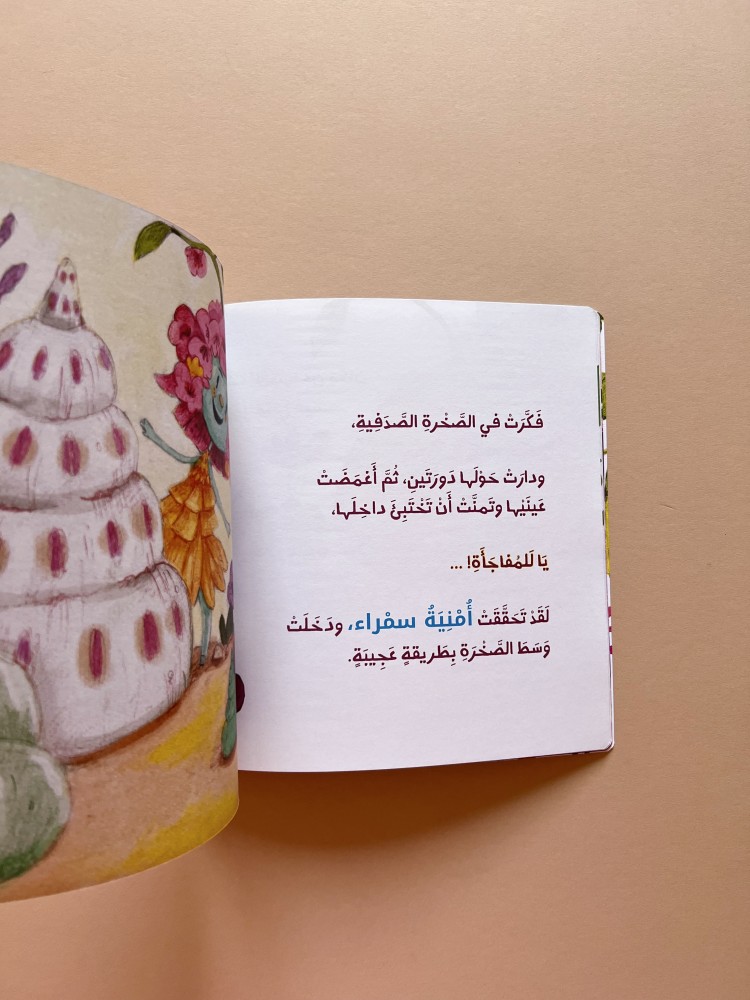 فَكَّرَتْ في الصَّخْرةِ الصَّدَفِيةِ،
ودارَتْ حَوْلَها دَورَتَينِ، ثُمَّ أَغْمَضَتْ
عَينَيْها وتَمنَّتْ أَنْ تَخْتَبِئَ داخِلَها،
يَا لَلمُفاجَأَةِ! ...
لَقَدْ تَحَقَّقَتْ أُمْنِيَةُ سمْراء، ودَخَلَتْ
وَسَطَ الصَّخْرَةِ بِطَريقةٍ عَجِيبَةٍ.